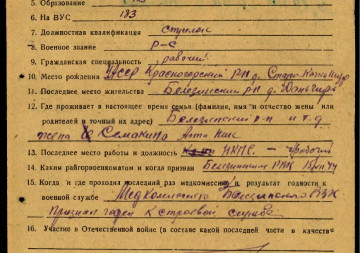 5. Образование
6. На ВУС 133
7. Должностная квалификация стрелок
8. Военное звание р-с
9. Гражданская специальность рабочий
10. Место рождения Красногорский р-н д.
11. Последнее место жительства Балезинский р-н д.
12. Где проживает в настоящее время семья (фамилия, имя и отчество жены или
родителей и точный их адрес) Балезинский р-н и т.д.
жена Семакина
13. Последнее место работы и должность НКПС — рабочий
14. Каким райгорвоенкоматом и когда призван Балезинским РВК
15. Когда и где проходил последний раз медкомиссию и результат годности к
военной службе Медкомиссию Балезинского РВК
Признан годен к строевой службе
16. Участие в Отечественной войне (в составе какой последней части в качестве